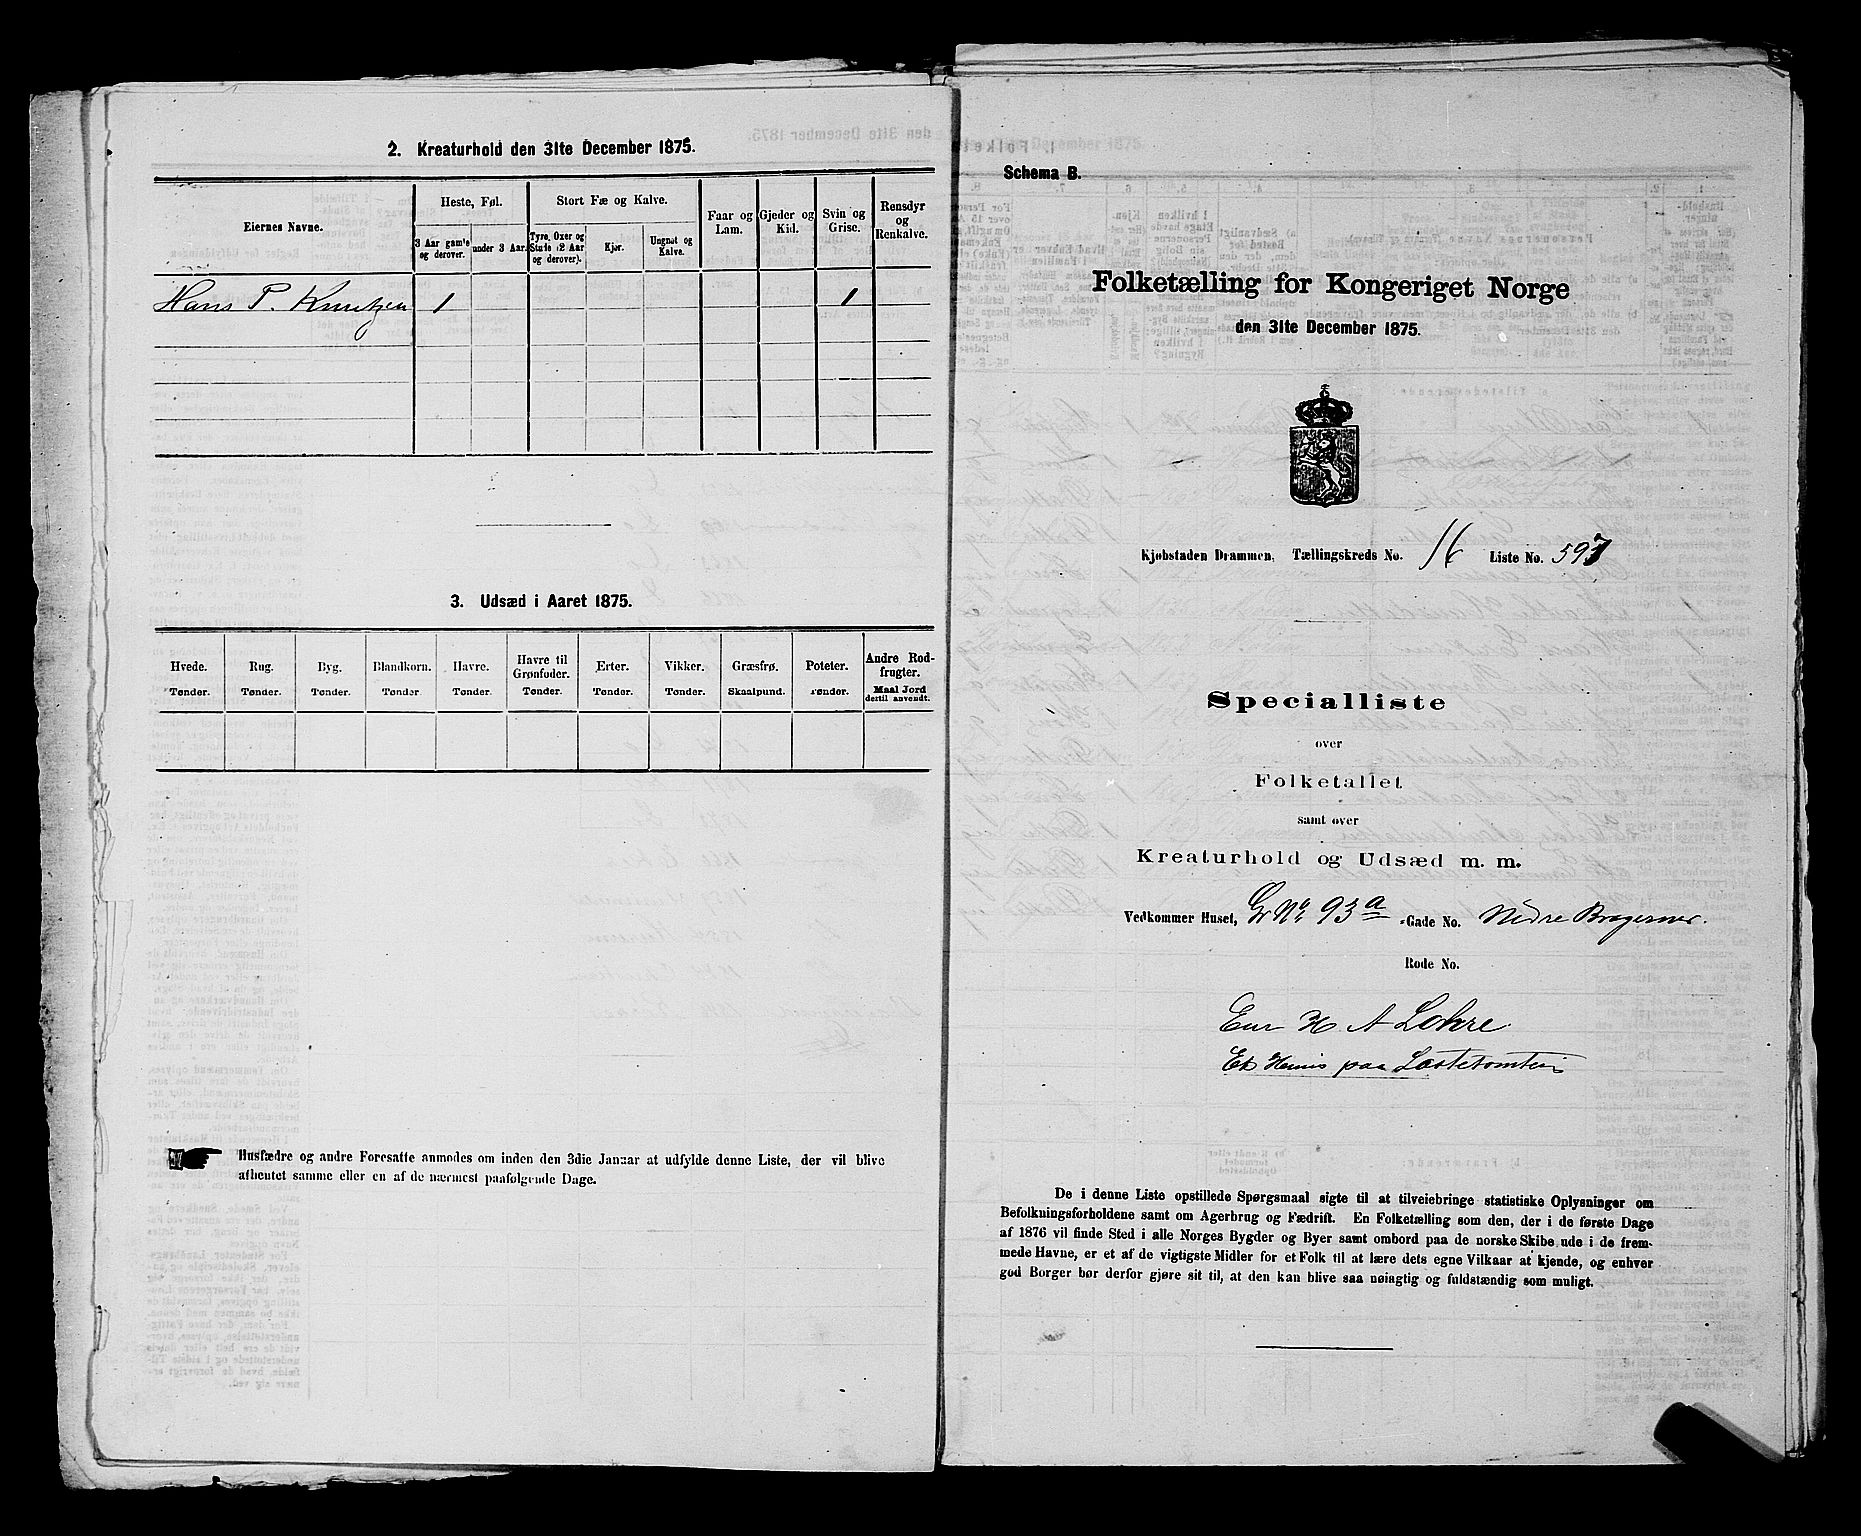 2. Kreaturhold den 31te December 1875.
Eiernes Navne.
Heste, Føl.
3 Aar gamle og derover.
under 3 Aar.
Stort Fæ og Kalve.
Tyre, Oxer og Stude (2 Aar og derover).
Kjør.
Ungnøt og Kalve.
Faar og Lam.
Gjeder og Kid.
Svin og Grise.
Rensdyr og Renkalve.
Hans P. Knutzen 1 1
3. Udsæd i Aaret 1875.
Hvede. Tønder.
Rug. Tønder.
Byg. Tønder.
Blandkorn. Tønder.
Havre. Tønder.
Havre til Grønfoder. Tønder.
Erter. Tønder.
Vikker. Tønder.
Græsfrø. Skaalpund.
Poteter. Tønder.
Andre Rodfrugter. Maal Jord dertil anvendt.
Husfædre og andre Foresatte anmodes om inden den 3die Januar at udfylde denne Liste, der vil blive
afhentet samme eller en af de nærmest paafølgende Dage.
Schema B.
Folketælling for Kongeriget Norge
den 31te December 1875.
Kjøbstaden Drammen, Tællingskreds No. 16 Liste No. 597
Specialliste
over
Folketallet
samt over
Kreaturhold og Udsæd m. m.
Vedkommer Huset, Gr No 93a -Gade No. Nedre Bragernes.
Rode No.
Eier H A Lohre.
Et Huus paa Lastetomten
De i denne Liste opstillede Spørgsmaal sigte til at tilveiebringe statistiske Oplysninger om
Befolkningsforholdene samt om Agerbrug og Fædrift. En Folketælling som den, der i de første Dage
af 1876 vil finde Sted i alle Norges Bygder og Byer samt ombord paa de norske Skibe ude i de frem-
mede Havne, er et af de vigtigste Midler for et Folk til at lære dets egne Vilkaar at kjende, og enhver
god Borger bør derfor gjøre sit til, at den kan blive saa nøiagtig og fuldstændig som muligt.